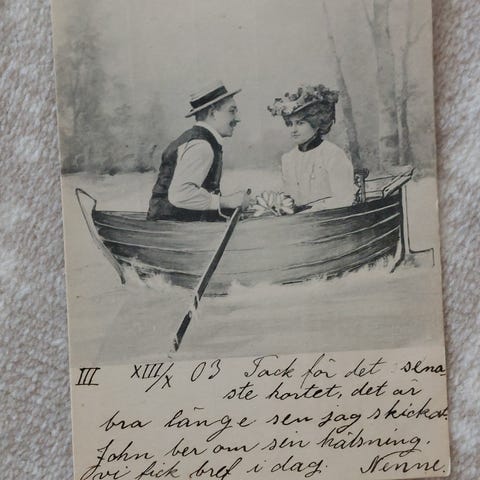 III XIII/X 03 Tack för det sena-
ste kortet, det är
bra länge sen jag skickat.
John ber om sin hälsning.
vi fick bref i dag. Nenne.